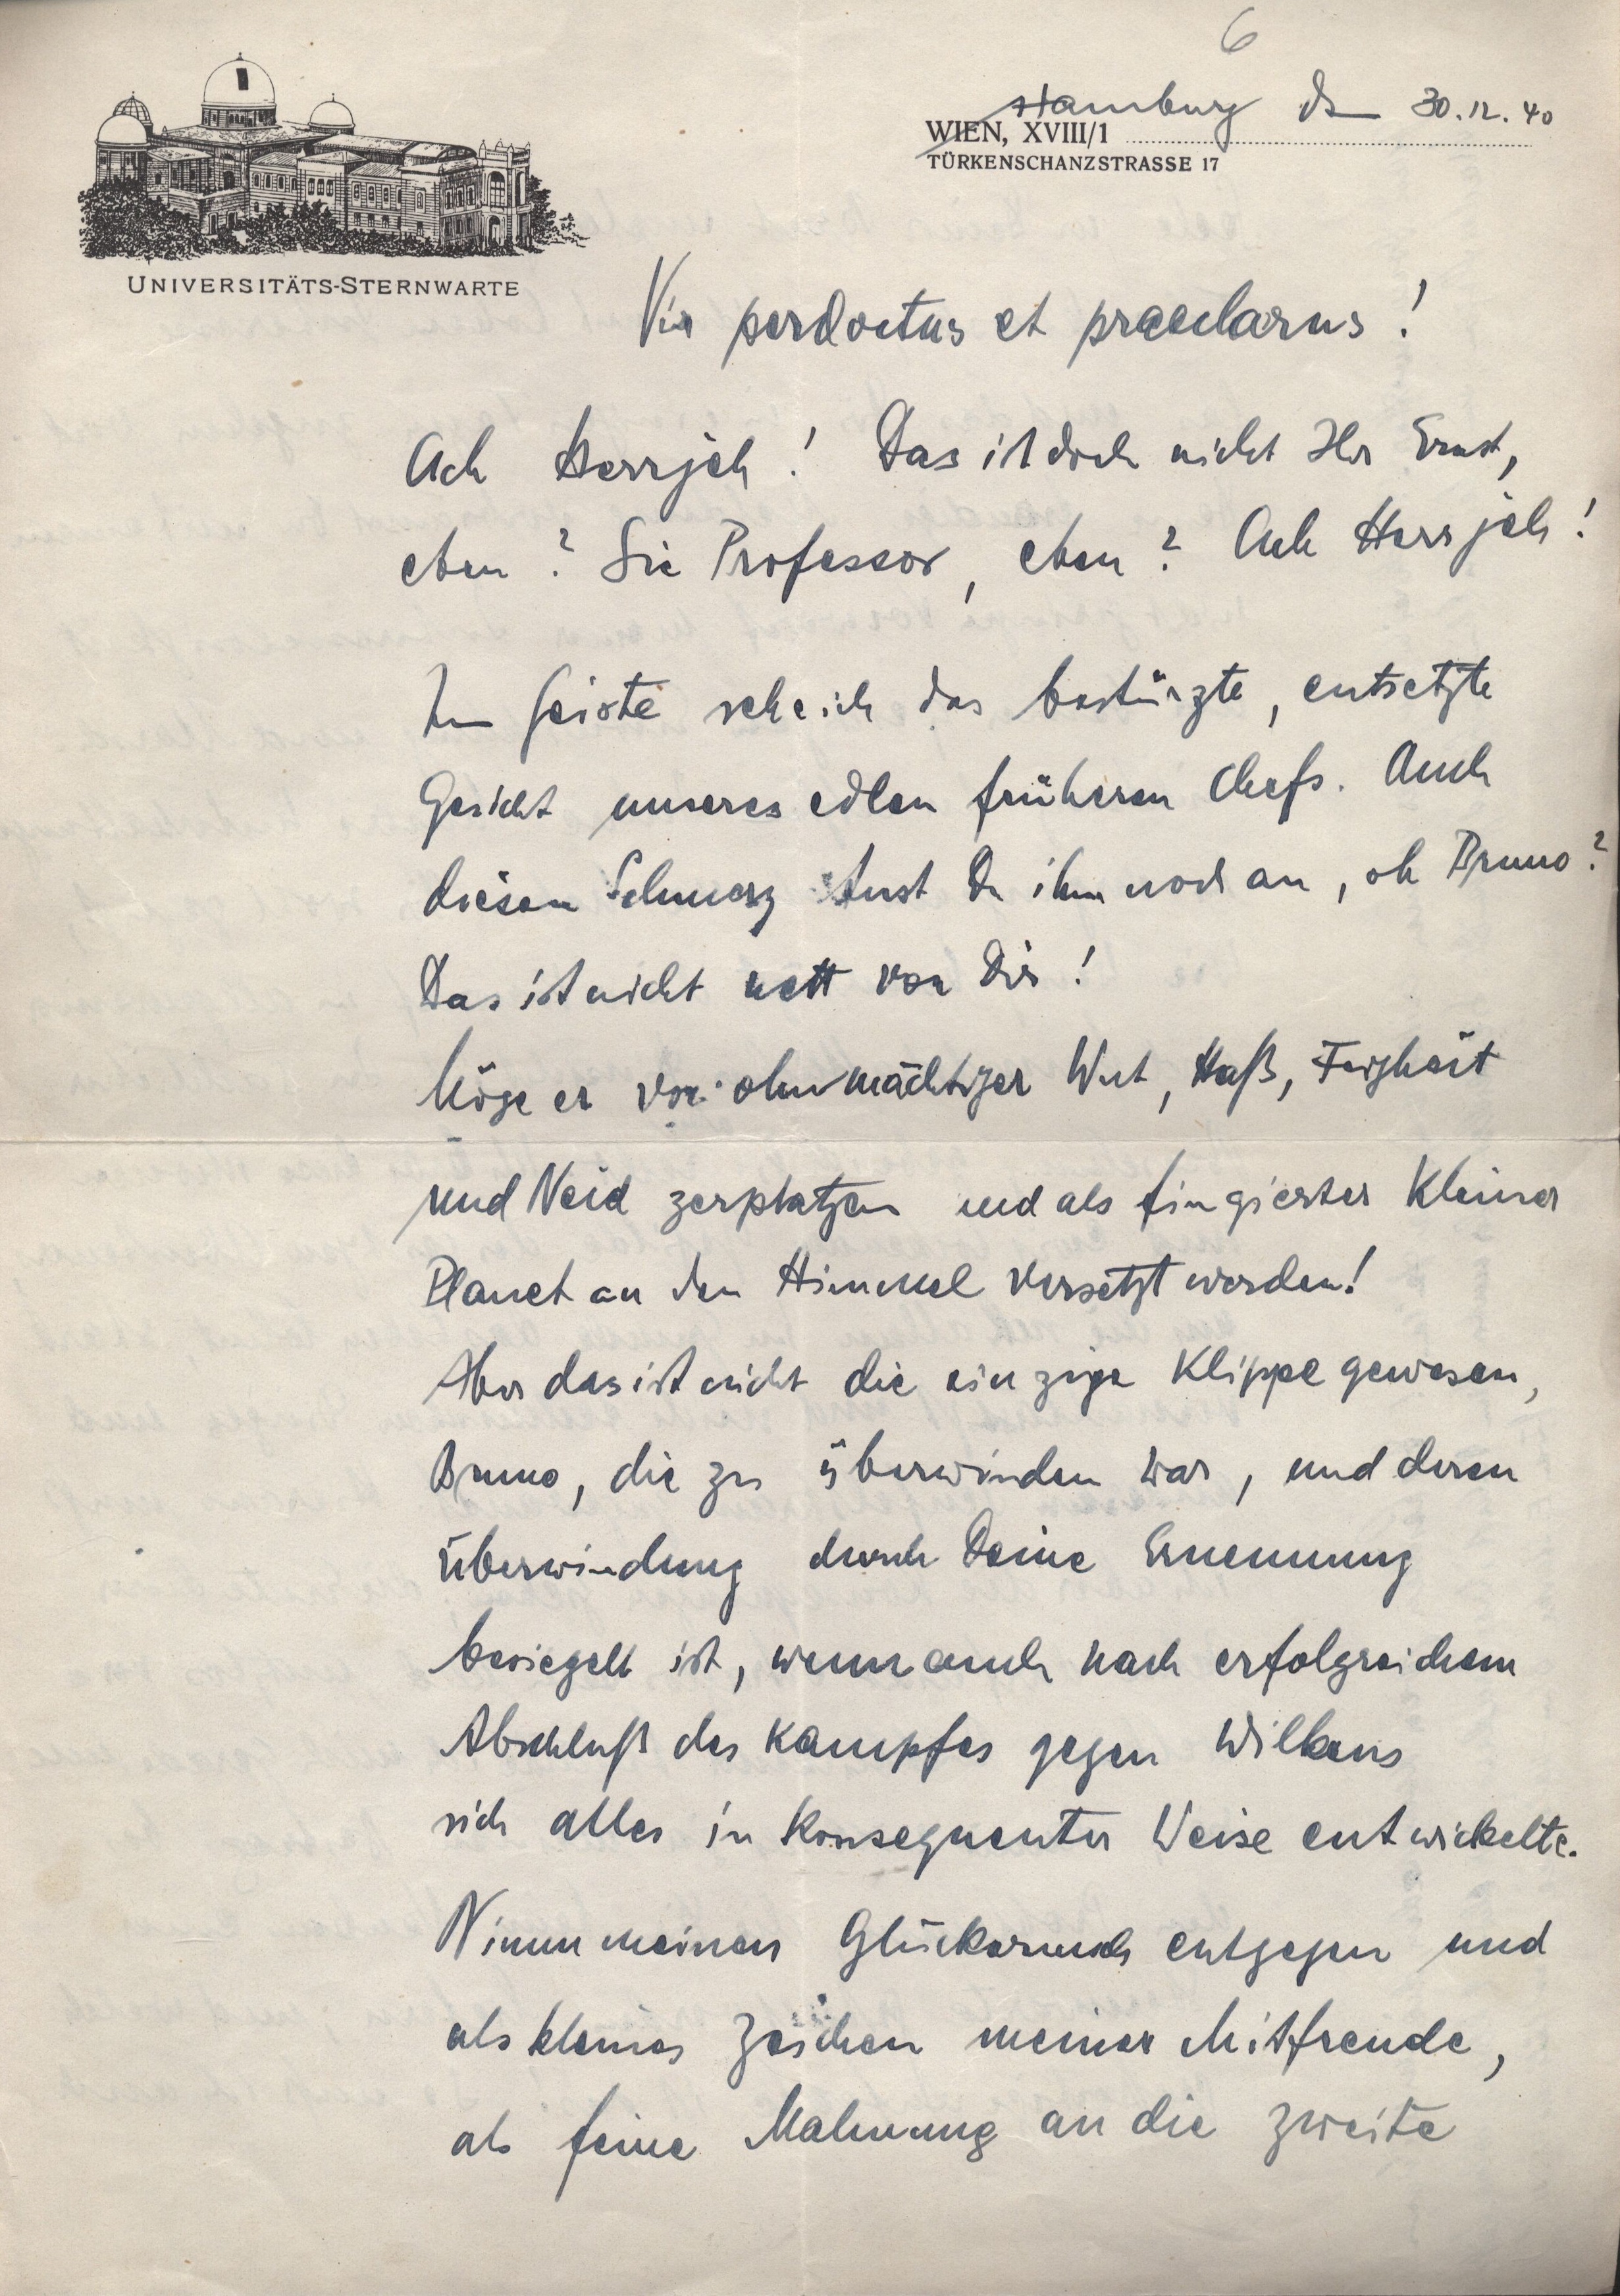 6
Hamburg den 30.12.40
WIEN, XVIII/1
TÜRKENSCHANZSTRASSE 17
UNIVERSITÄTS-STERNWARTE
Vir perdoctus et praeclarus!
Ach Herrjeh! Das ist doch nicht Ihr Ernst,
eben? Sie Professor, eben? Ach Herrjeh!
Im Geiste sehe ich das bestürzte, entsetzte
Gesicht unseres edlen früheren Chefs. Auch
diesen Schmerz tust Du ihm noch an, oh Bruno?
Das ist nicht nett von Dir!
Möge er vor ohnmächtiger Wut, Haß, Feigheit
und Neid zerplatzen und als fingierter Kleiner
Planet an den Himmel versetzt werden!
Aber das ist nicht die einzige Klippe gewesen,
Bruno, die zu überwinden war, und deren
Überwindung durch Deine Ernennung
besiegelt ist, wenn auch nach erfolgreichem
Abschluß des Kampfes gegen Wilkens
sich alles in konsequenter Weise entwickelte.
Nimm meinen Glückwunsch entgegen und
als kleines Zeichen meiner Mitfreude,
als feine Mahnung an die zweite